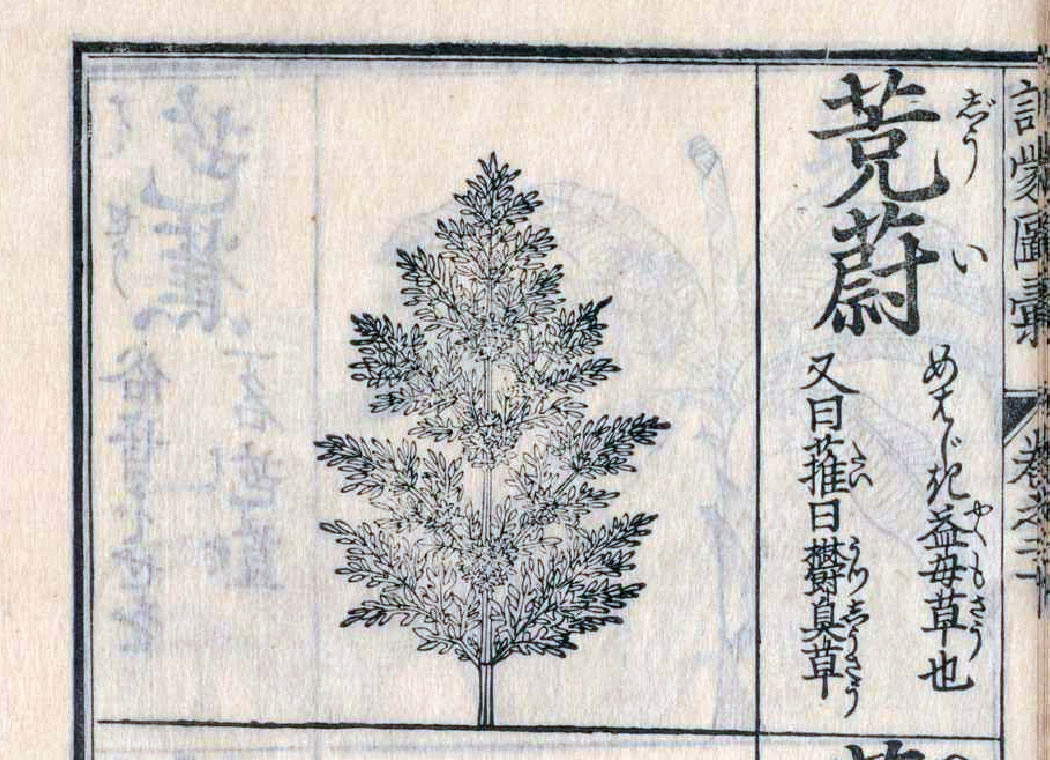 訓蒙圖彙 卷之二十
じう い
茺蔚
めはじき益母草也
やくもさう
又曰蓷曰欝臭草
うつしうさう